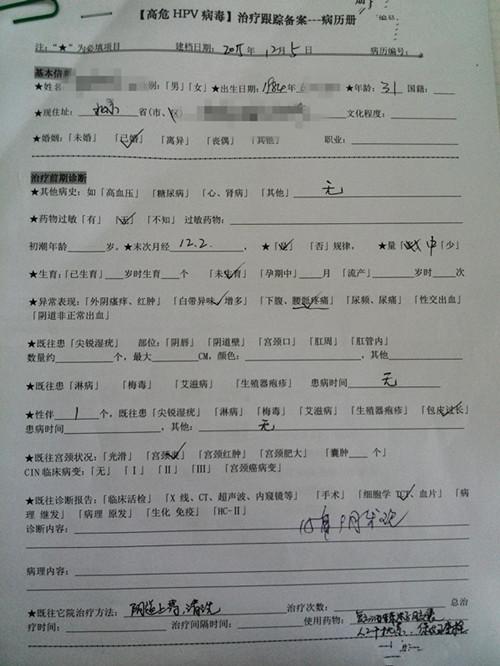 【高危 HPV 病毒】治疗跟踪备案---病历册
编号:
注：“★”为必填项目 建档日期：2015年 12月 5日 病历编号：
基本信
★姓名 别：「男」「女」★出生日期：1984年 ★年龄：31 国籍：
★现住址： 北京 省(市、区) 文化程度：
★婚姻：「未婚」「已婚」「离异」「丧偶」「其他」 职业：
治疗前期诊断
★其他病史：如「高血压」「糖尿病」「心、肾病」「其他」 无
★药物过敏「有」「无」「不知」过敏药物：
初潮年龄 岁。★末次月经 12.2. ★「是」「否」规律， ★量「 中「少」
★生育：「已生育」 岁时生育 个 「未生育」「孕期中」 月「流产」 岁时 次
★异常表现：「外阴瘙痒、红肿」「白带异味、增多」「下腹、腰骶疼痛」「尿频、尿痛」「性交出血」
「阴道非正常出血」
★既往患「尖锐湿疣」 部位：「阴唇」「阴道壁」「宫颈口」「肛周」「肛管内」
数量约 个，最大 CM，颜色： 其他
★既往患「淋病」「梅毒」「艾滋病」「生殖器疱疹」 患病时间 无
★性伴 1 个，既往患「尖锐湿疣」「淋病」「梅毒」「艾滋病」「生殖器疱疹」「包皮过长」
患病时间 ，其他： 无
★既往宫颈状况：「光滑」「宫颈 」「宫颈红肿」「宫颈肥大」「囊肿 个」
CIN 临床病变：「无」「Ⅰ」「Ⅱ」「Ⅲ」「宫颈癌病变」
★既往诊断报告：「临床活检」「X 线、CT、超声波、内窥镜等」「手术」「细胞学 、血片」「病
理 继发」「病理 原发」「生化 免疫」「HC-Ⅱ」
诊断内容： 15年9月
病理内容：
★既往它院治疗方法： 阴道上药,清洗 治疗次数： 总治
疗时间： 治疗间隔时间： 使用药物：